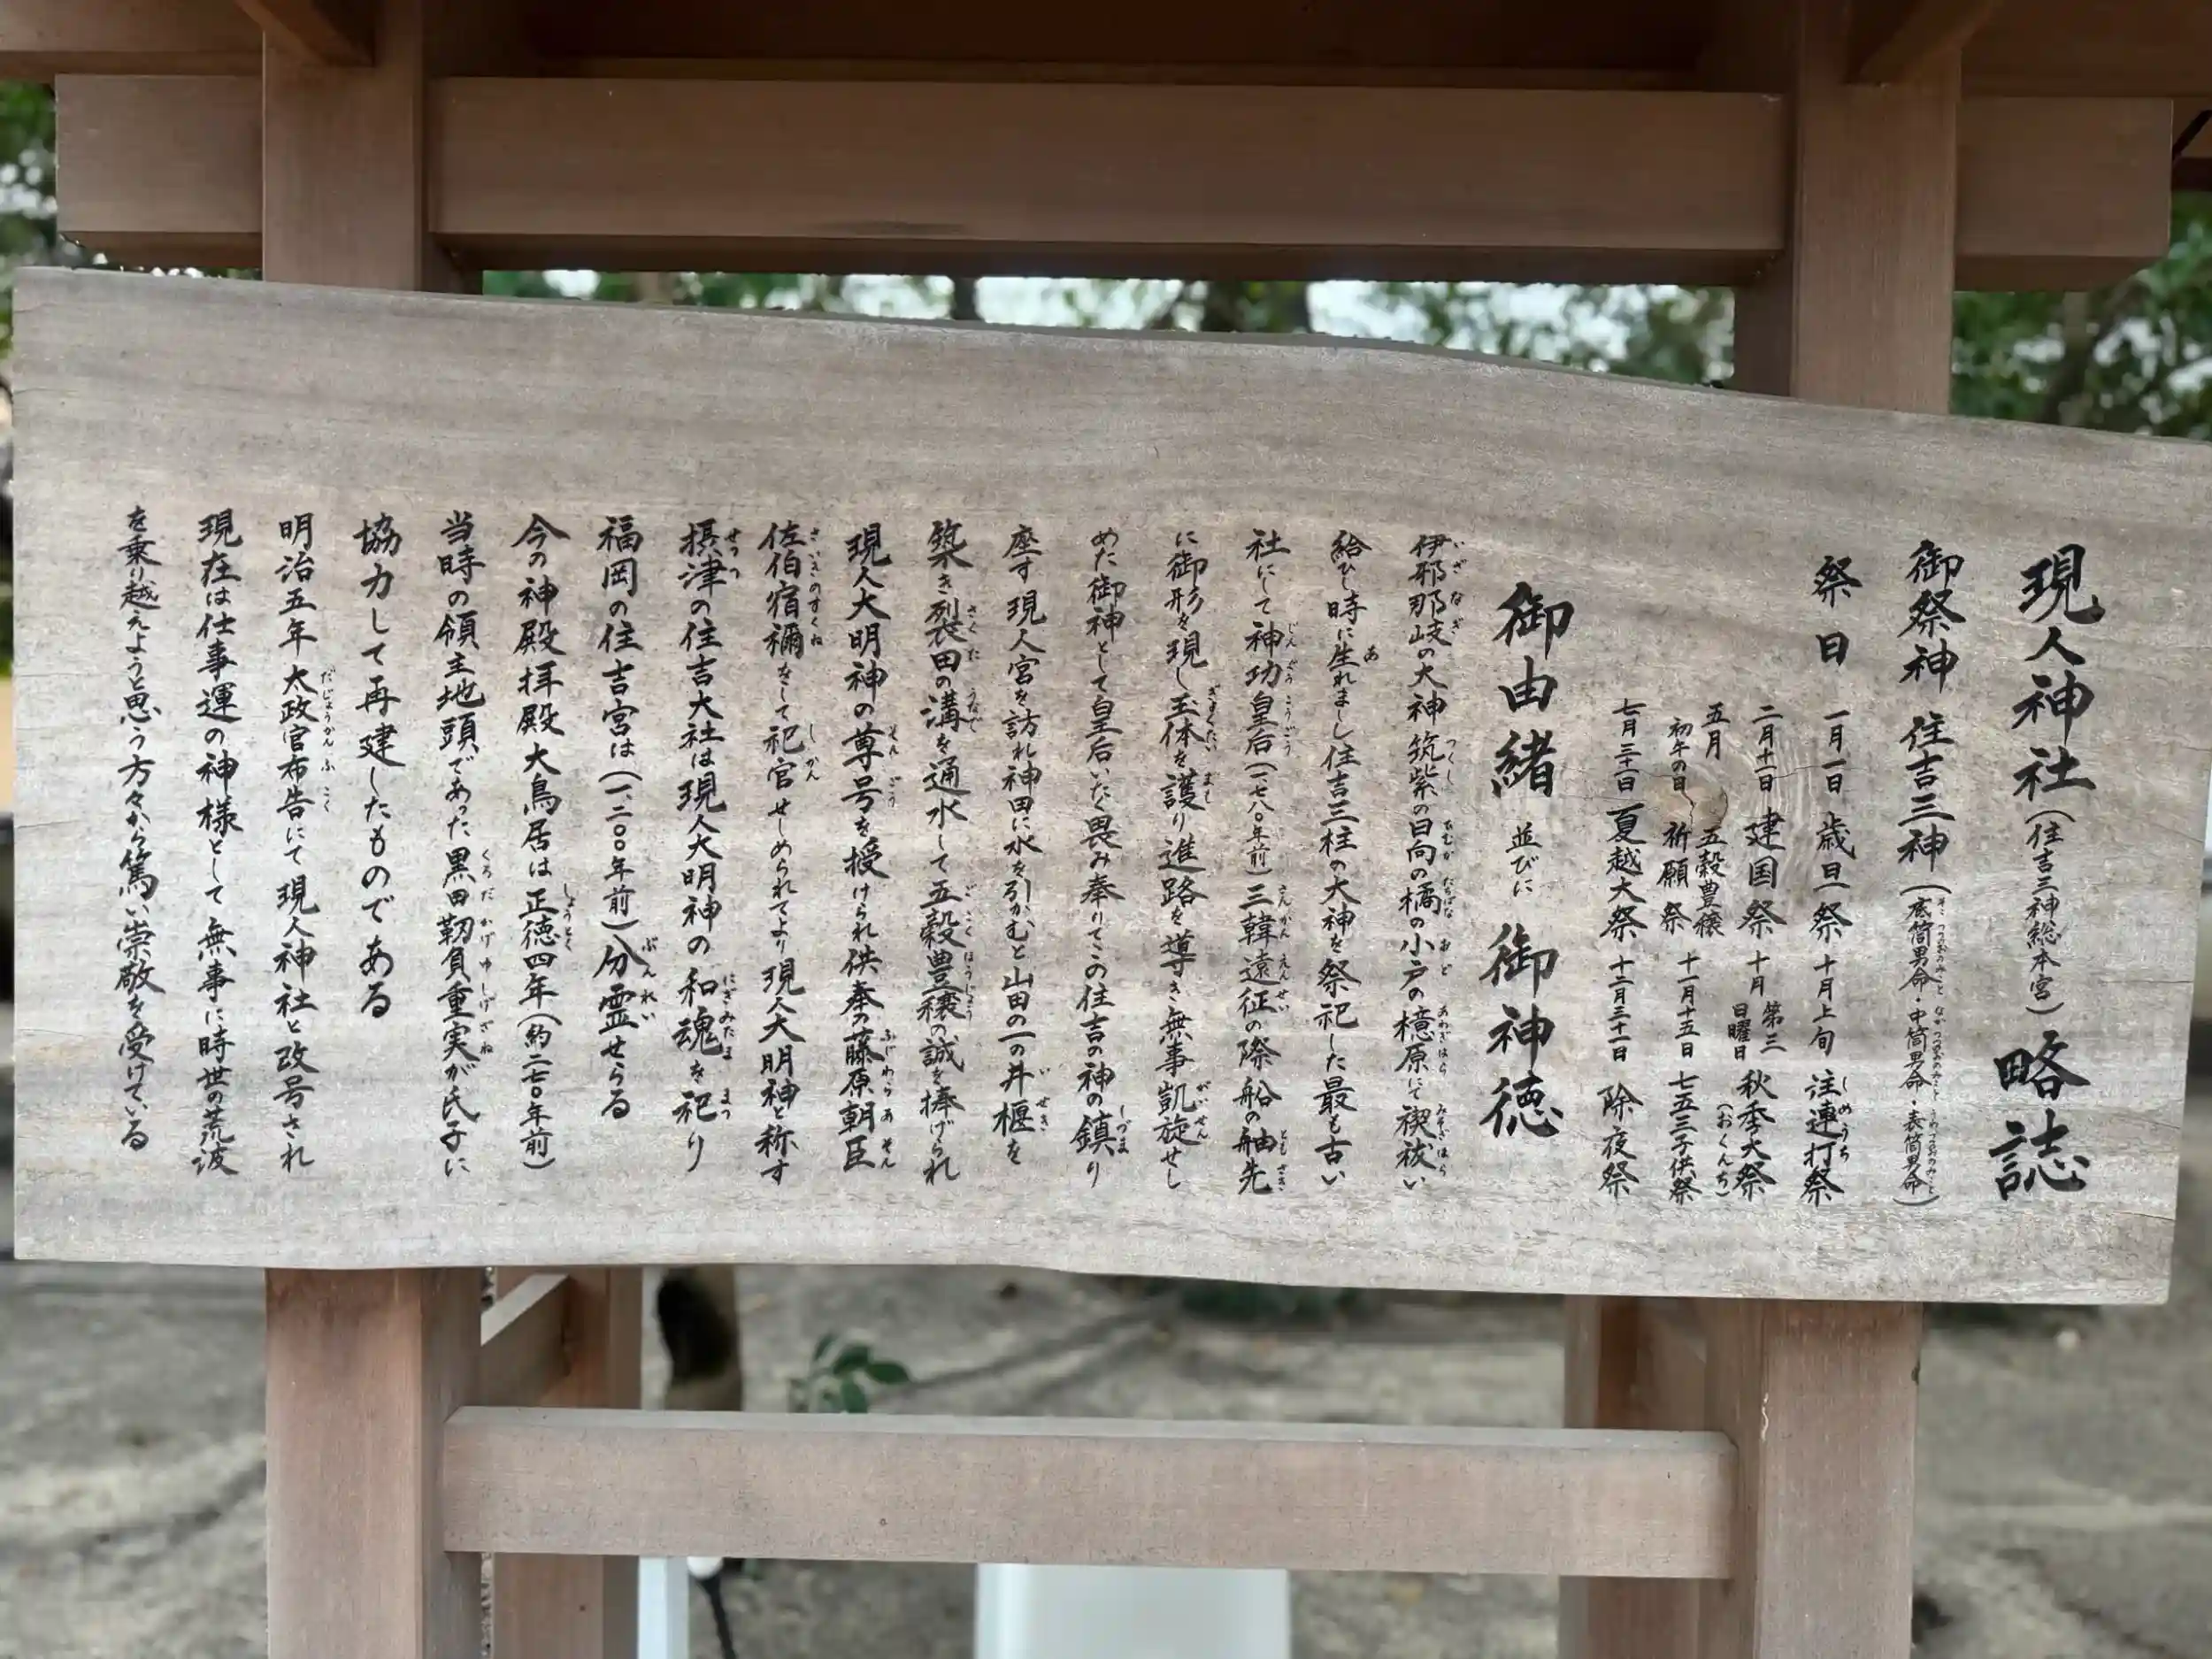 現人神社(住吉三神総本宮)略誌
御祭神 住吉三神(底筒男命・中筒男命・表筒男命)
祭日 一月一日 歳旦祭 十月上旬 注連打祭
二月十一日 建国祭 十月 第三日曜日 秋季大祭(おくんち)
五月 初午の日 五穀豊穣祈願祭 十一月十五日 七五三子供祭
七月三十一日 夏越大祭 十二月三十一日 除夜祭
御由緒 並びに 御神徳
伊邪那岐の大神筑紫の日向の橘の小戸の檍原にて禊祓い
給ひし時に生れまし住吉三柱の大神を祭祀した最も古い
社にして神功皇后(一、七八〇年前)三韓遠征の際船の舳先
に御形を現し玉体を護り進路を導き無事凱旋せし
めた御神として皇后いたく畏み奉りてこの住吉の神の鎮り
座す現人宮を訪れ神田に水を引かむと山田の一の井堰を
築き裂田の溝を通水して五穀豊穣の誠を捧げられ
現人大明神の尊号を授けられ供奉の藤原朝臣
佐伯宿禰をして祀官せしめられてより現人大明神と称す
摂津の住吉大社は現人大明神の和魂を祀り
福岡の住吉宮は(一、二〇〇年前)分霊せらる
今の神殿拝殿大鳥居は正徳四年(約二七〇年前)
当時の領主地頭であった黒田靭負重実が氏子に
協力して再建したものである
明治五年太政官布告にて現人神社と改号され
現在は仕事運の神様として無事に時世の荒波
を乗り越えようと思う方々から篤い崇敬を受けている